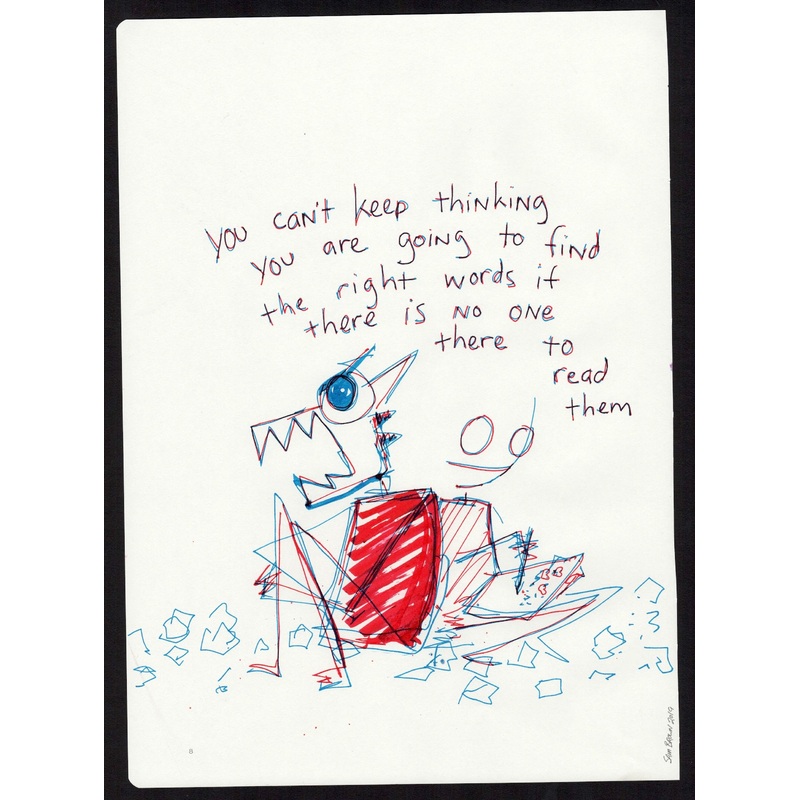 you can't keep thinking
you are going to find
the right words if
there is no one
there to
read
them
6